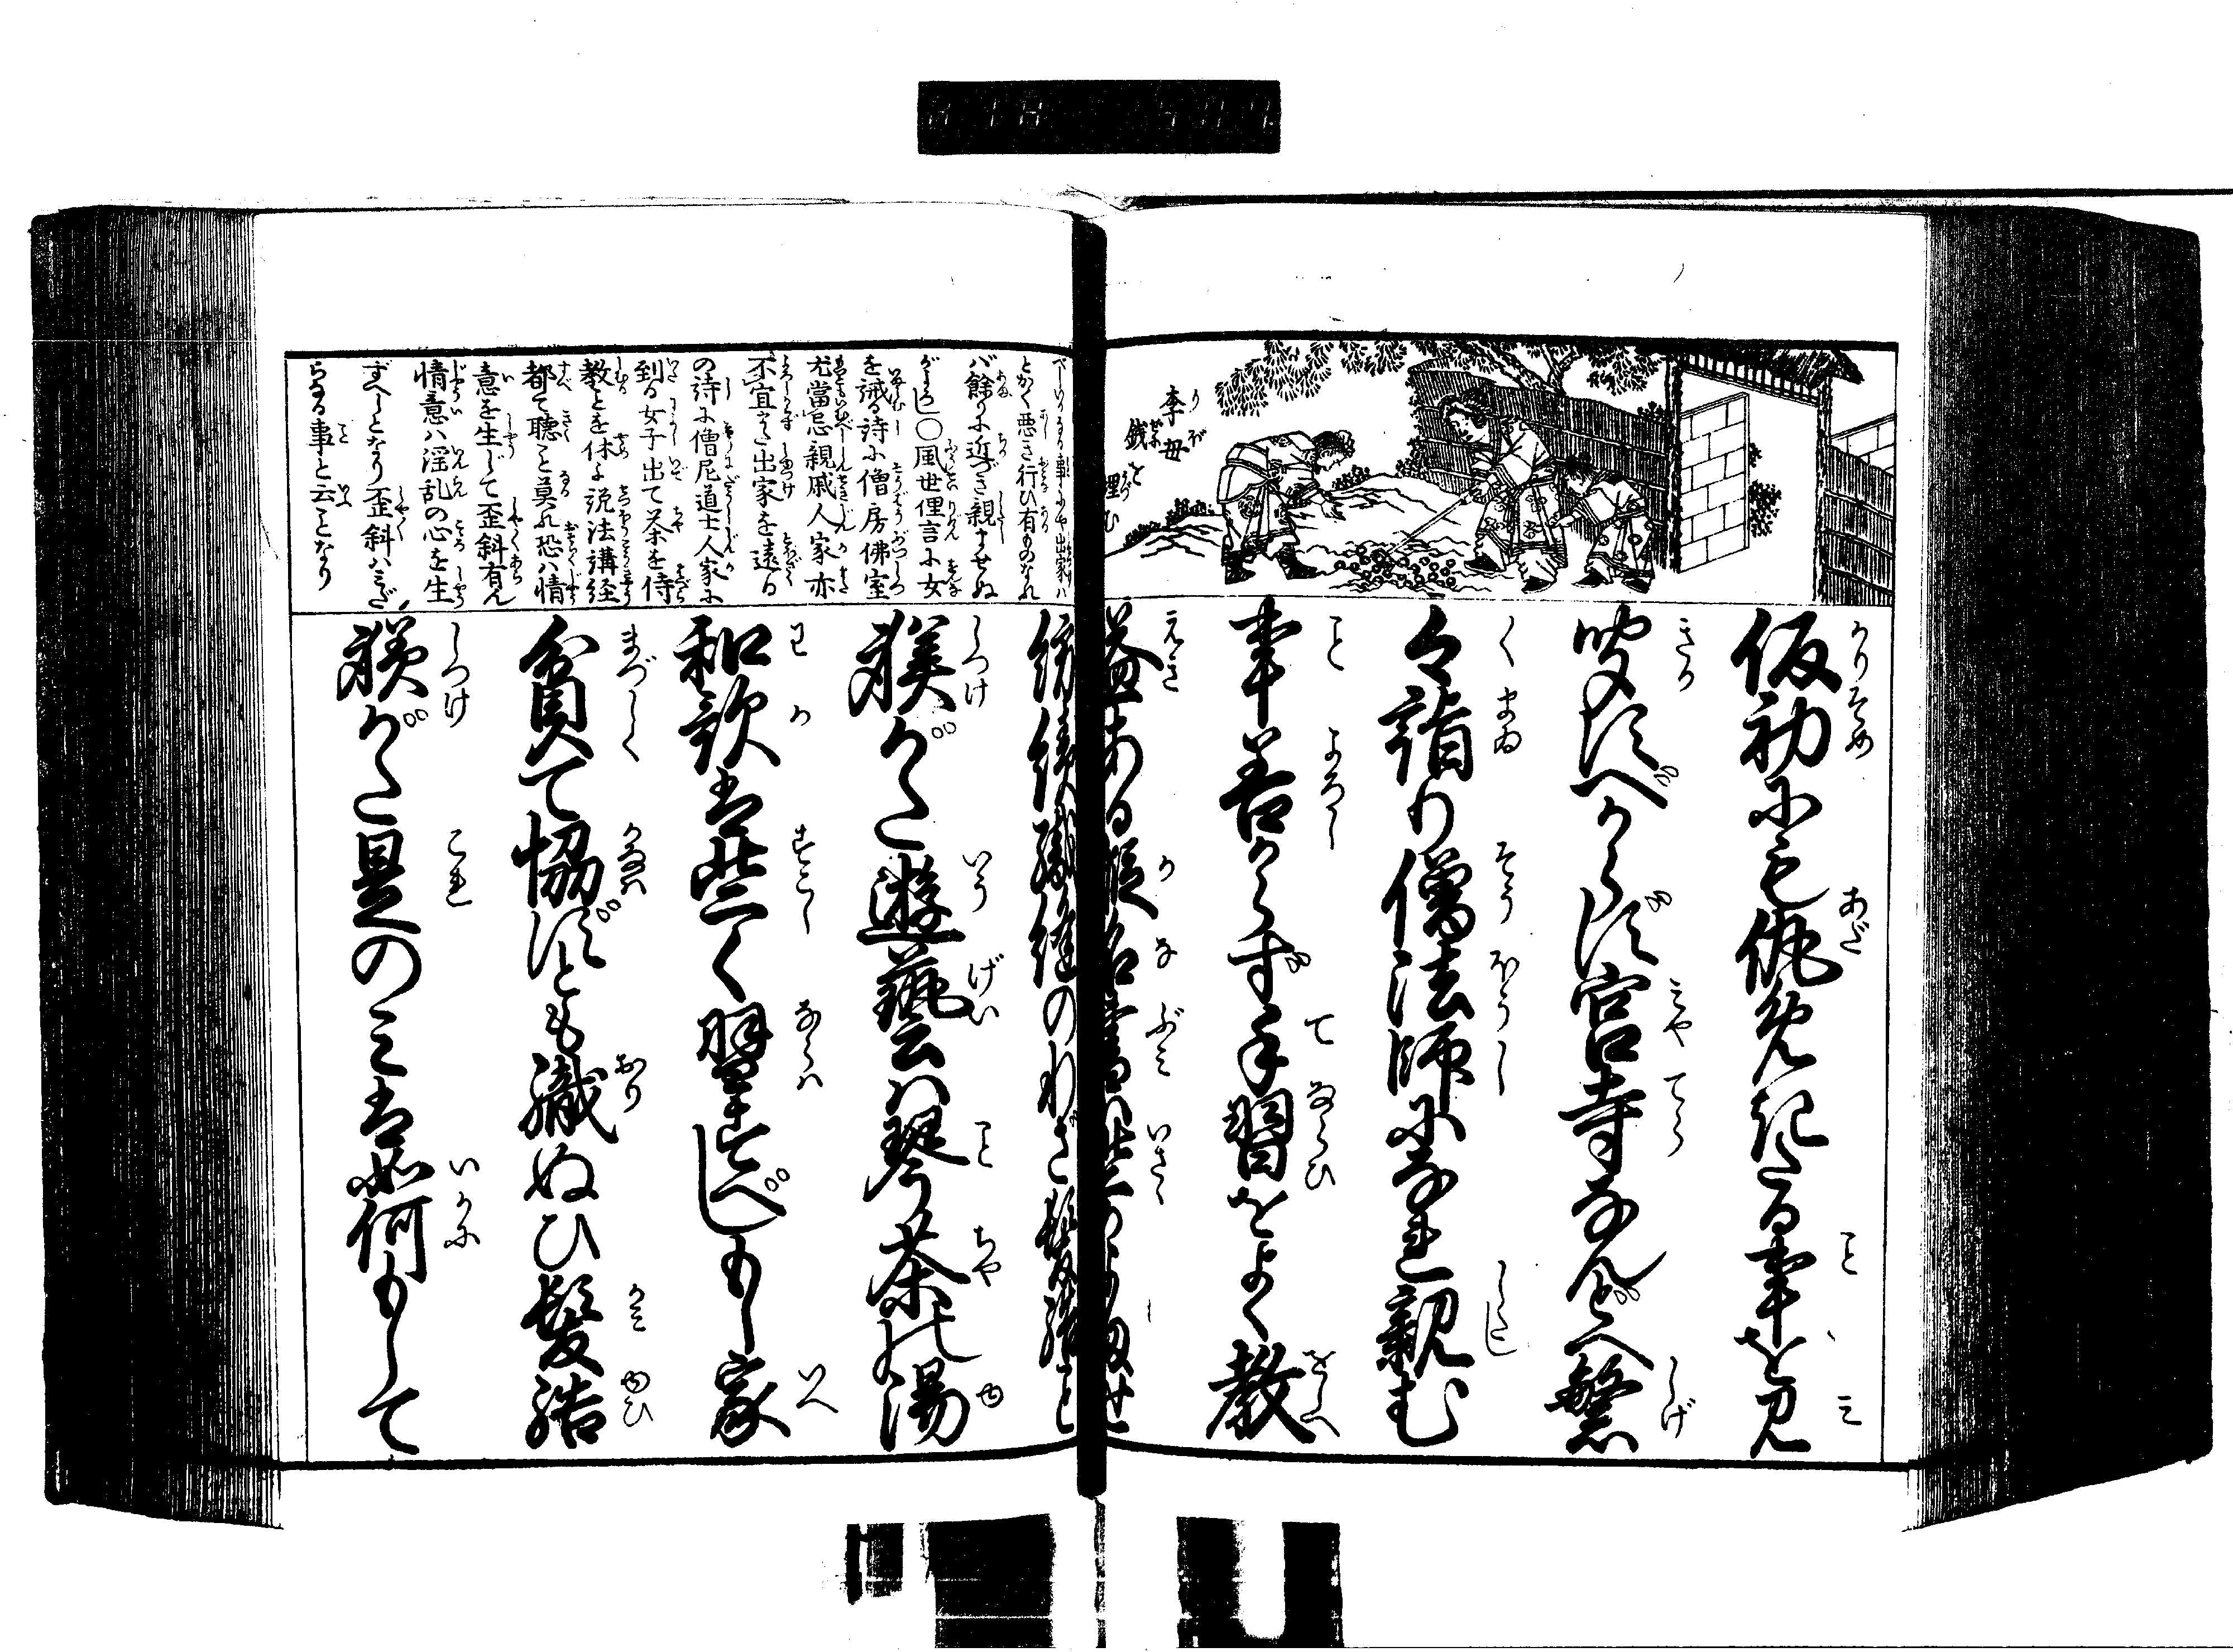 李母
銭を
埋む
仮初にも仇めきたる事を見
聞すべからず宮寺なんどへ繁
々詣り僧法師に馴れ親む
事善からず手習をよく教
益ある仮名書
績織縫のわざ髪結こと
躾がた遊藝は琴茶の湯
和歌は些く習すべしもし家
貧て協ずとも織ぬひ髪結
躾がた是のみは如何もして
とかく悪き行ひ有ものなれ
バ餘りに近づき親ませぬ
がよし〇風世俚言に女
を誡る詩に僧房佛室
尤當忌親戚人家亦
不宜また出家を遠る
の詩に僧尼道士人家に
到る女子出て茶を侍
教とを休よ説法講経
都て聴こと莫れ恐ハ情
意を生じて歪斜有ん
情意ハ淫乱の心を生
ずることなり歪斜ハみだ
らなる事と云ことなり